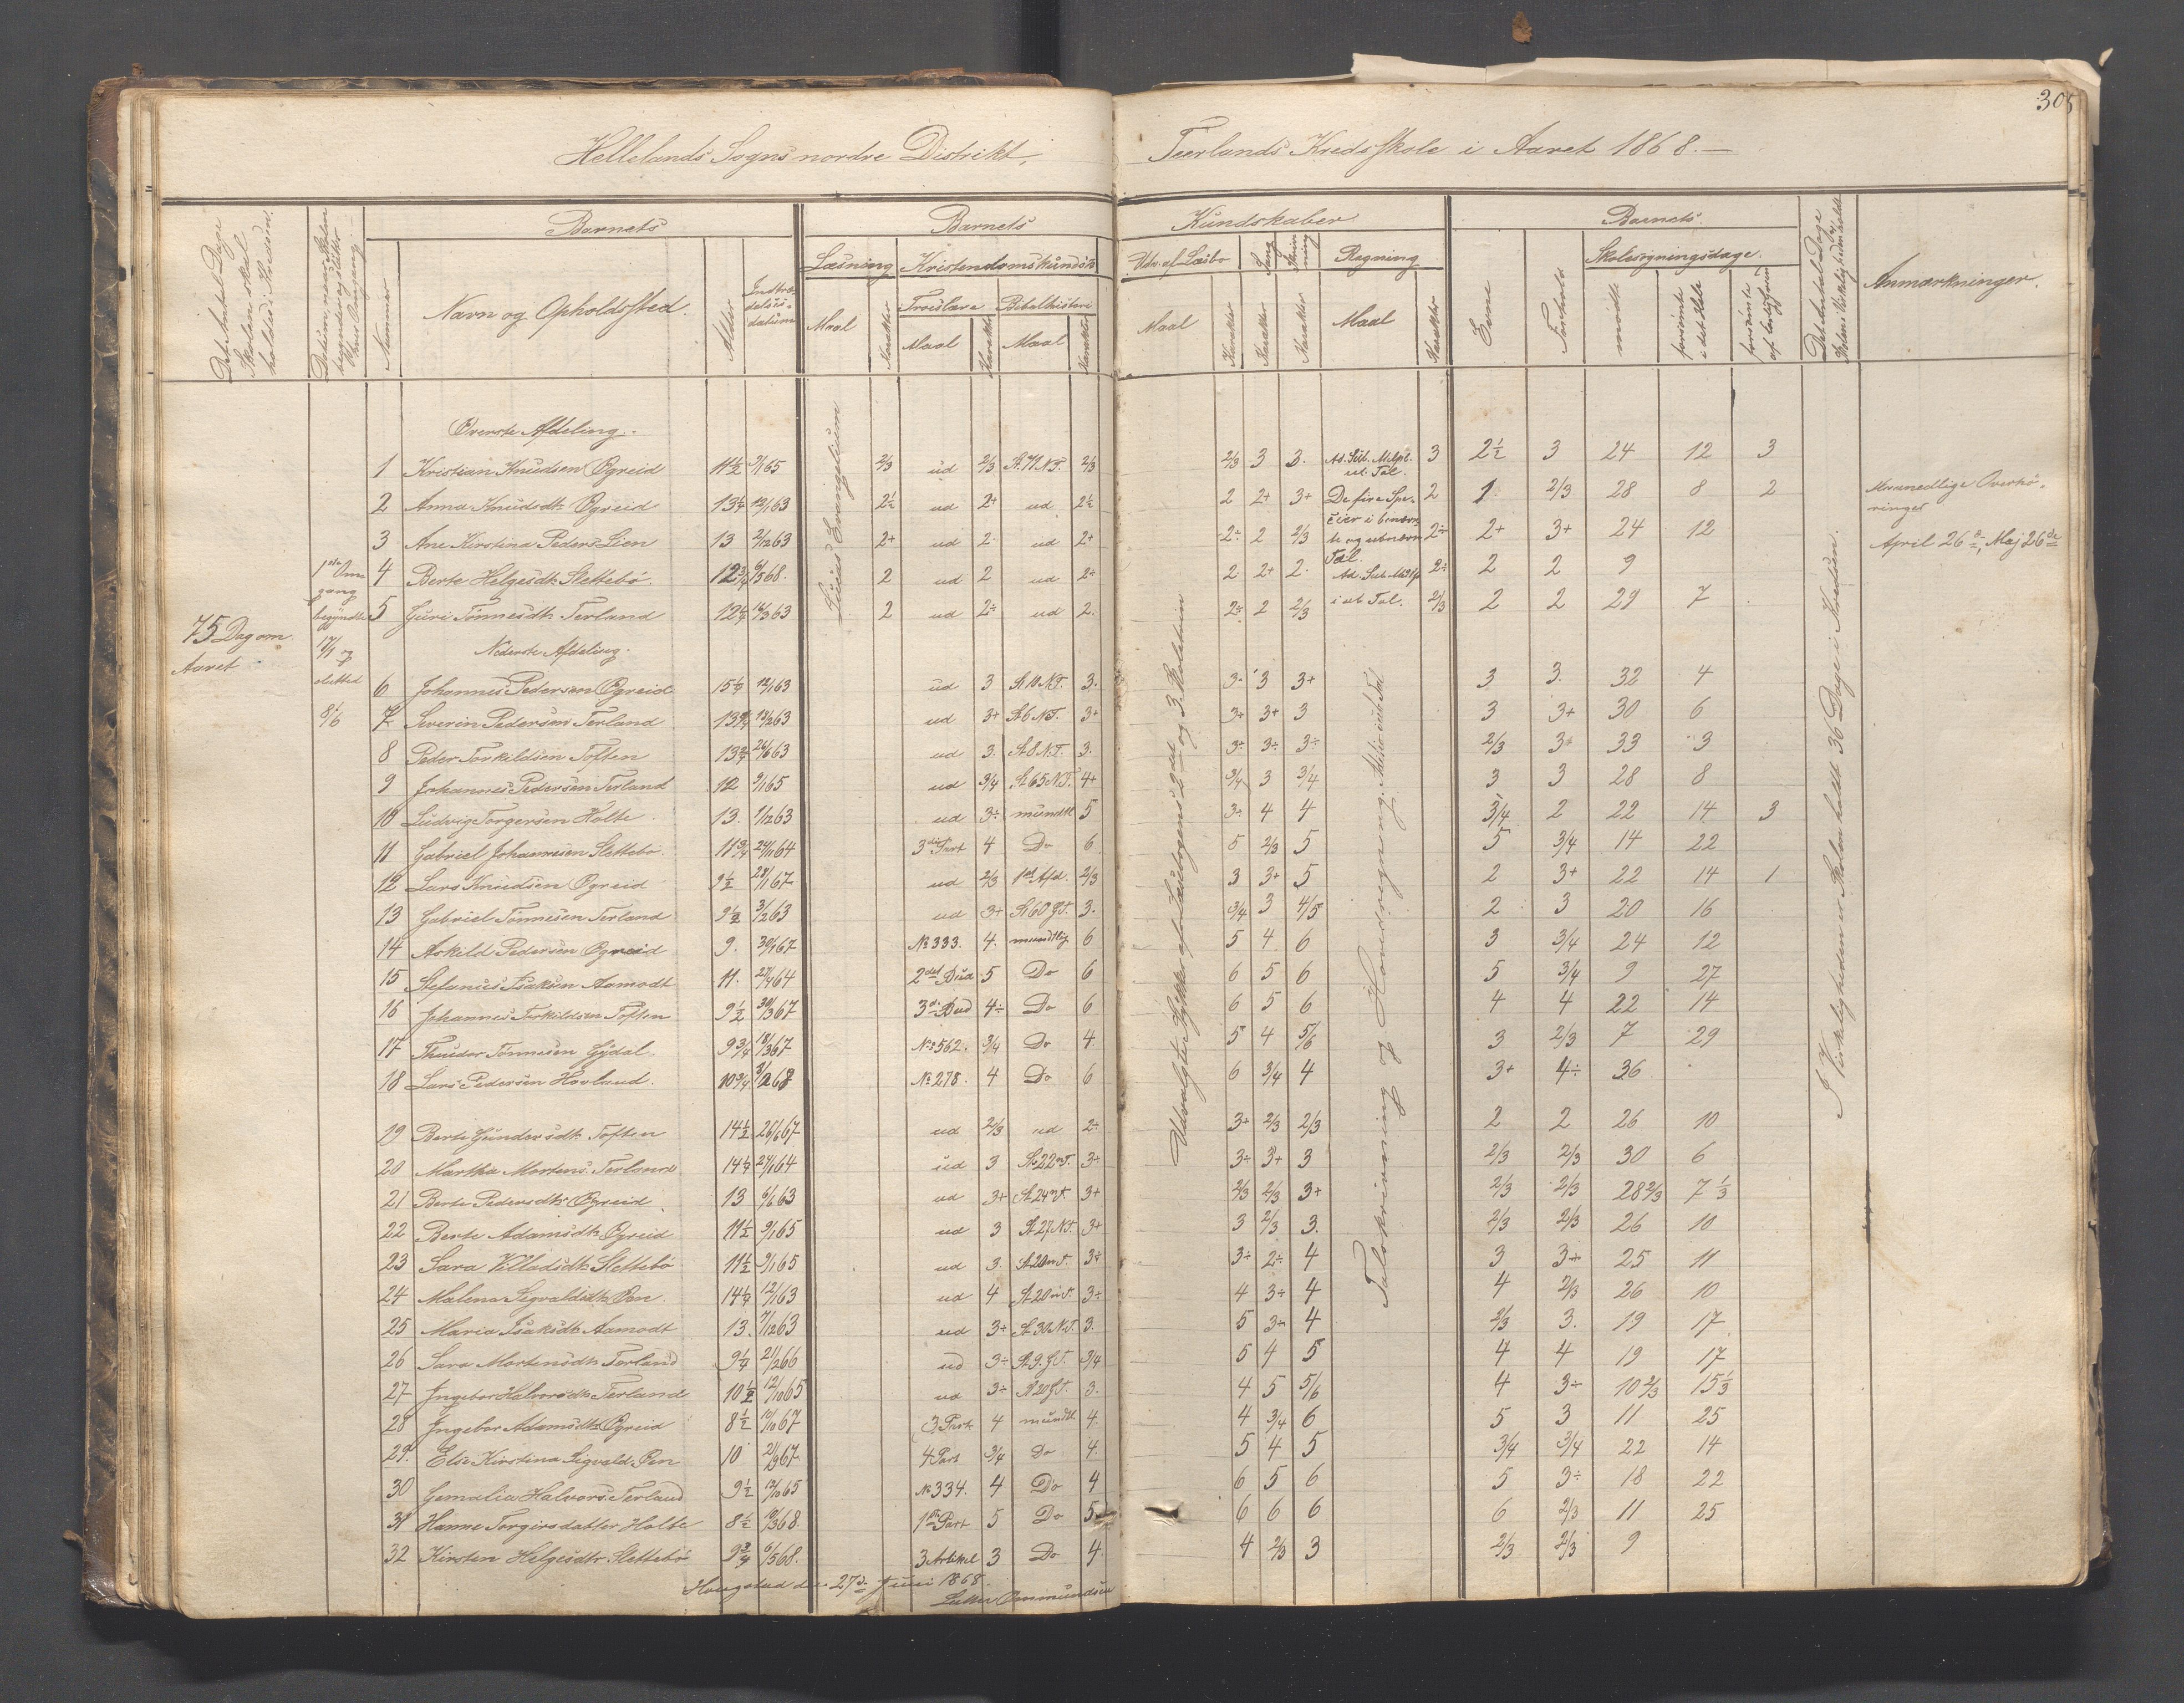 305
Hellelands Sogns nordre Distrikt,
Teerlands Kredsskole i Aaret 1868.
Barnets
Barnets
Kundskaber
Barnets
Det Antal Dage Skolen skal holdes i Kredsen.
Nummer
Navn og Opholdssted.
Alder
Indtrædelsesdatum
Læsning
Maal
Karakter
Kristendomskundsk.
Troeslære
Maal
Karakter
Bibelhistorie
Maal
Karakter
Udv. af Læsebo
Maal
Karakter
Sang
Karakter
Skrivning
Karakter
Regning
Maal
Karakter
Evne
Forhold
Skolesøgningsdage.
mødte
forsømte i det Hele
forsømte af lovl. Grund
Det Antal Dage Skolen i Virkelighed er holdt
Anmærkninger.
75 Dag om Aaret
1ste Omgang begyndte 17/1 og slutted 8/6
Øverste Afdeling.
1 Kristian Knudsen Øgreid 11½ 9/1 65 2/3 ud 2/3 St. 71 N.T. 2/3 2/3 3 3. Ad. Sub. Mltpl. i ub. Tal. 3 2½ 3 24 12 3
2 Anna Knudsdtr Øgreid 13¼ 12/1 63 2½ ud 2+ ud 2½ 2 2+ 3+ De fire Specier i benævn 2 1 2/3 28 8 2
3 Ane Kirstina Peders Lien 13 2/12 63 2+ ud 2 ud 2+ 2÷ 2 2/3 te og ubenævn Tal. 2÷ 2+ 3+ 24 12
4 Berte Helgesdtr Slettebø 12¾ 6/5 68. 2 ud 2 ud 2÷ 2 2+ 2. Ad. Sub. 2÷ 2 2 9
5 Guri Tønnesdtr Terland 12¼ 16/3 63 2 ud 2÷ ud 2. 2÷ 2 2/3 i ub Tal. 2/3 2 2 29 7
Maanedlige Overhøringer
April 26de, Maj 26de
Nederste Afdeling.
6 Johannes Pedersen Øgreid 15¼ 12/1 63 ud 3 St. 10 N.T. 3. 3÷ 3 3+ 3 3. 32 4
7 Severin Pedersen Terland 13¾ 12/2 63 ud 3+ St. 6 N.T. 3+ 3+ 3+ 3 3 3+ 30 6
8 Peder Torkildsen Toften 13¾ 24/6 63 ud 3. St. 8 N.T. 3. 3÷ 3÷ 3÷ 2/3 3÷ 33 3
9 Johannes Pedersen Terland 12 9/1 65 ud 3/4 St 65 N.T. 4+ 3/4 3 3/4 3 3 28 8
10 Ludvig Torgersen Holte 13. 7/12 63 ud 3÷ mundtl 5 3÷ 4 4 3/4 2 22 14 3
11 Gabriel Johannesen Slettebø 11¾ 24/11 64 3die Part 4 Do 6 5 2/3 5 5 3/4 14 22
12 Lars Knudsen Øgreid 9½ 28/1 67 ud 2/3 1ste Afd. 2/3 3 3+ 5 2 3+ 22 14 1
13 Gabriel Tønnesen Terland 9½ 3/2 63 ud 3+ St 60 G.T. 3. 3/4 3 4/5 2 3 20 16
14 Askild Pedersen Øgreid 9. 30/1 67 No 333. 4. mundtlig 6 5 4 6 3 3/4 24 12
15 Stefanius Isaksen Aamodt 11. 27/4 64 2det Bud 5 Do 6 6 5 6 5 3/4 9 27
16 Johannes Torkildsen Toften 9½ 30/3 67 3die Bud 4÷ Do 6 6 5 6 4 4 22 14
17 Thuder Tønnesen Gydal 9¾ 18/3 67 No 562. 3/4 Do 4. 5 4 5/6 3 2/3 7 29
18 Lars Pedersen Hovland. 10¾ 3/2 68 No 278. 4 Do 6 6 3/4 4 3+ 4÷ 36
19 Berte Gundersdtr Toften 14½ 26/6 67 ud 2/3 ud 2÷ 3+ 2/3 2/3 2 2 26 10
20 Martha Mortens. Terland 14¼ 24/1 64 ud 3 St. 22 N.T. 3÷ 3÷ 3+ 3 2/3 2/3 30 6
21 Berte Pedersdtr Øgreid 13 6/1 63 ud 3+ St. 24 N.T. 3+ 2/3 2/3 3+ 2/3 2/3 28 2/3 7 1/3
22 Berte Adamsdtr Øgreid 11½ 9/1 65 ud 3 St. 27 N.T. 3+ 3 2/3 3. 2/3 2/3 26 10
23 Sara Villadsdtr Slettebø 11½ 9/1 65 ud 3. St. 20 N.T. 3÷ 3÷ 2÷ 4 3 3÷ 25 11
24 Malena Sigvaldsdtr Pen 14¼ 12/1 63 ud 4 St. 20 N.T. 3÷ 4 3÷ 4 4 2/3 26 10
25 Maria Isaksdtr Aamodt 13. 7/12 63 ud 3+ St. 30 N.T. 3. 5 3÷ 4 2/3 3. 19 17
26 Sara Mortensdtr Terland 9¼ 21/2 66 ud 3÷ St. 9. G.T. 3/4 5 4 5 4 4 19 17
27 Ingebor Halvorsdtr Terland 10½ 12/10 65 ud 3÷ St 20 G.T. 3. 4 5 5/6 4 3÷ 10 2/3 15 1/3
28 Ingebor Adamsdtr Øgreid 8½ 10/10 67 3 Part 4 mundtl. 4. 4 3/4 6 5 3 11 25
29. Elie Kirstina Sigvald. Pen 10 2/9 67 4 Part 3/4 Do 4. 5 4 5 3/4 3/4 22 14
30 Gemalia Halvors. Terland 9½ 12/10 65 No 334. 4 Do 4 6 5 6 5 3÷ 18 22
31 Hanne Torgersdatter Holte 8½ 10/3 68. 1ste Part 5 Do 5 6 6 6 6 2/3 11 25
32 Kirsten Helgesdtr. Slettebø 9¾ 6/5 68. 3 Artikel 3 Do 4. 4 2/3 3 2/3 2/3 9
Lucas Evangelium
Udvalgte Stykker af Læsebogens 2det og 3. Skoletrin
Talskrivning og Hovedregning.
I Virkeligheden er Skolen holdt 36 Dage i Kredsen.
Haugstad den 27de Juni 1868.
Ommundsen